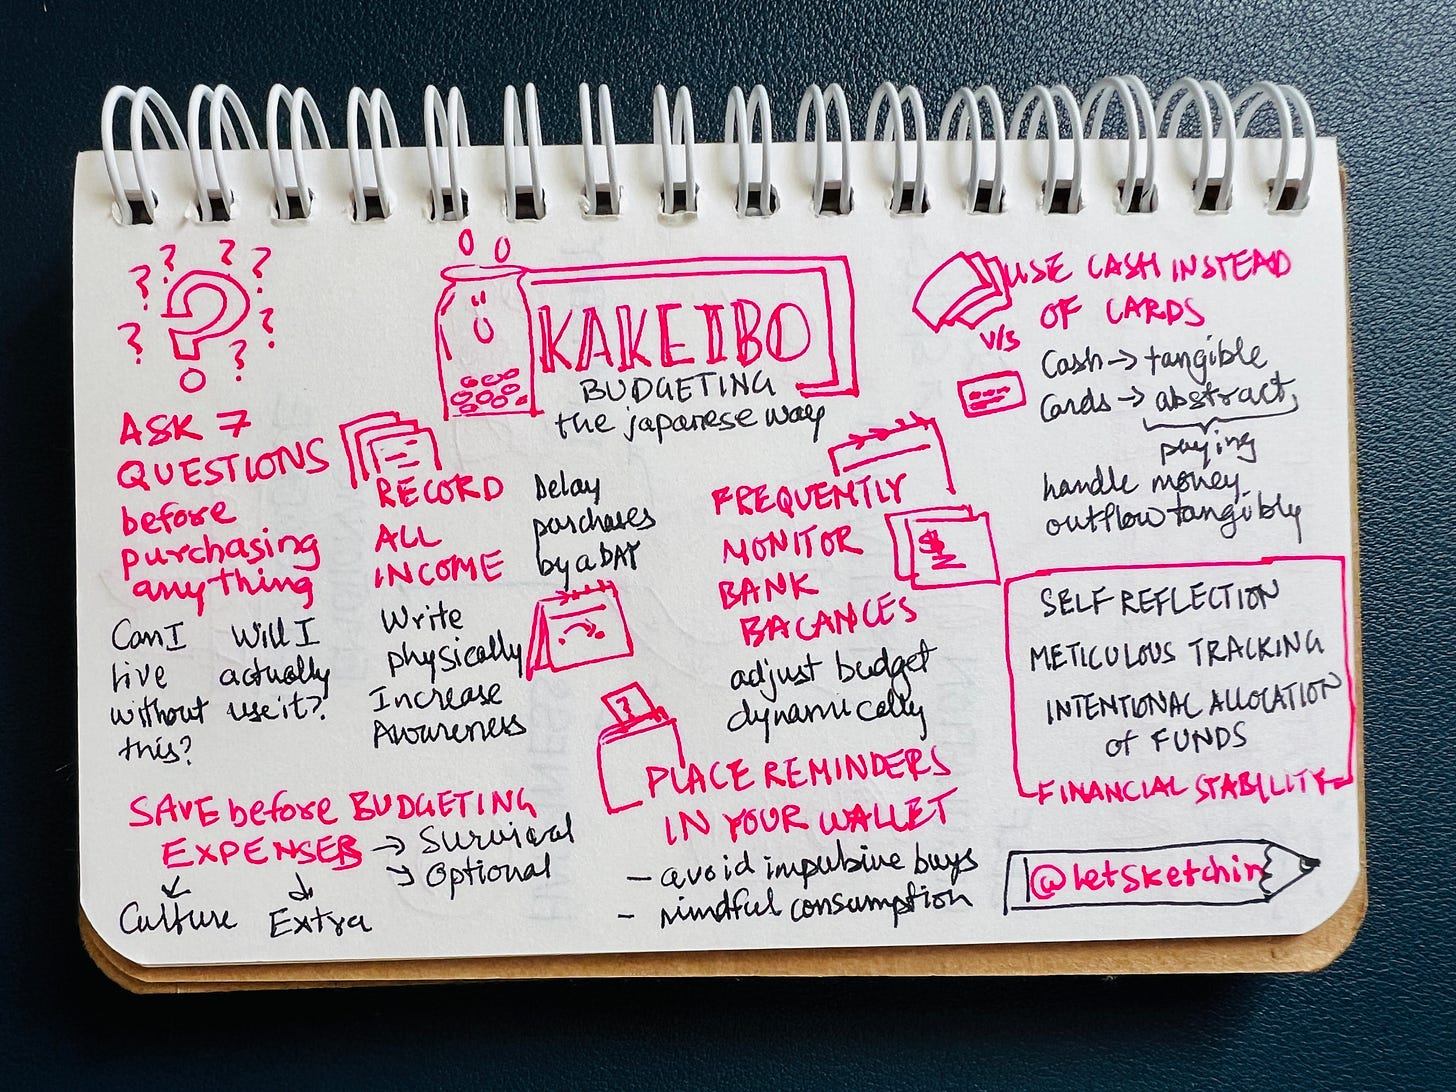 KAKEIBO
BUDGETING
the japanese way
ASK 7
QUESTIONS
before
purchasing
anything
Can I
live
without
this?
Will I
actually
use it?
RECORD
ALL
INCOME
Write
physically
Increase
Awareness
Delay
purchases
by a DAY
FREQUENTLY
MONITOR
BANK
BACANCES
adjust budget
dynamically
USE CASH INSTEAD
OF CARDS
v/s
Cash → tangible
Cards → abstract,
paying
handle money
outflow tangibly
SAVE before BUDGETING
EXPENSES → Survival
→ Optional
Culture
Extra
?
PLACE REMINDERS
IN YOUR WALLET
- avoid impulsive buys
- mindful consumption
SELF REFLECTION
METICULOUS TRACKING
INTENTIONAL ALLOCATION
of FUNDS
FINANCIAL STABILITY
@letSketchin